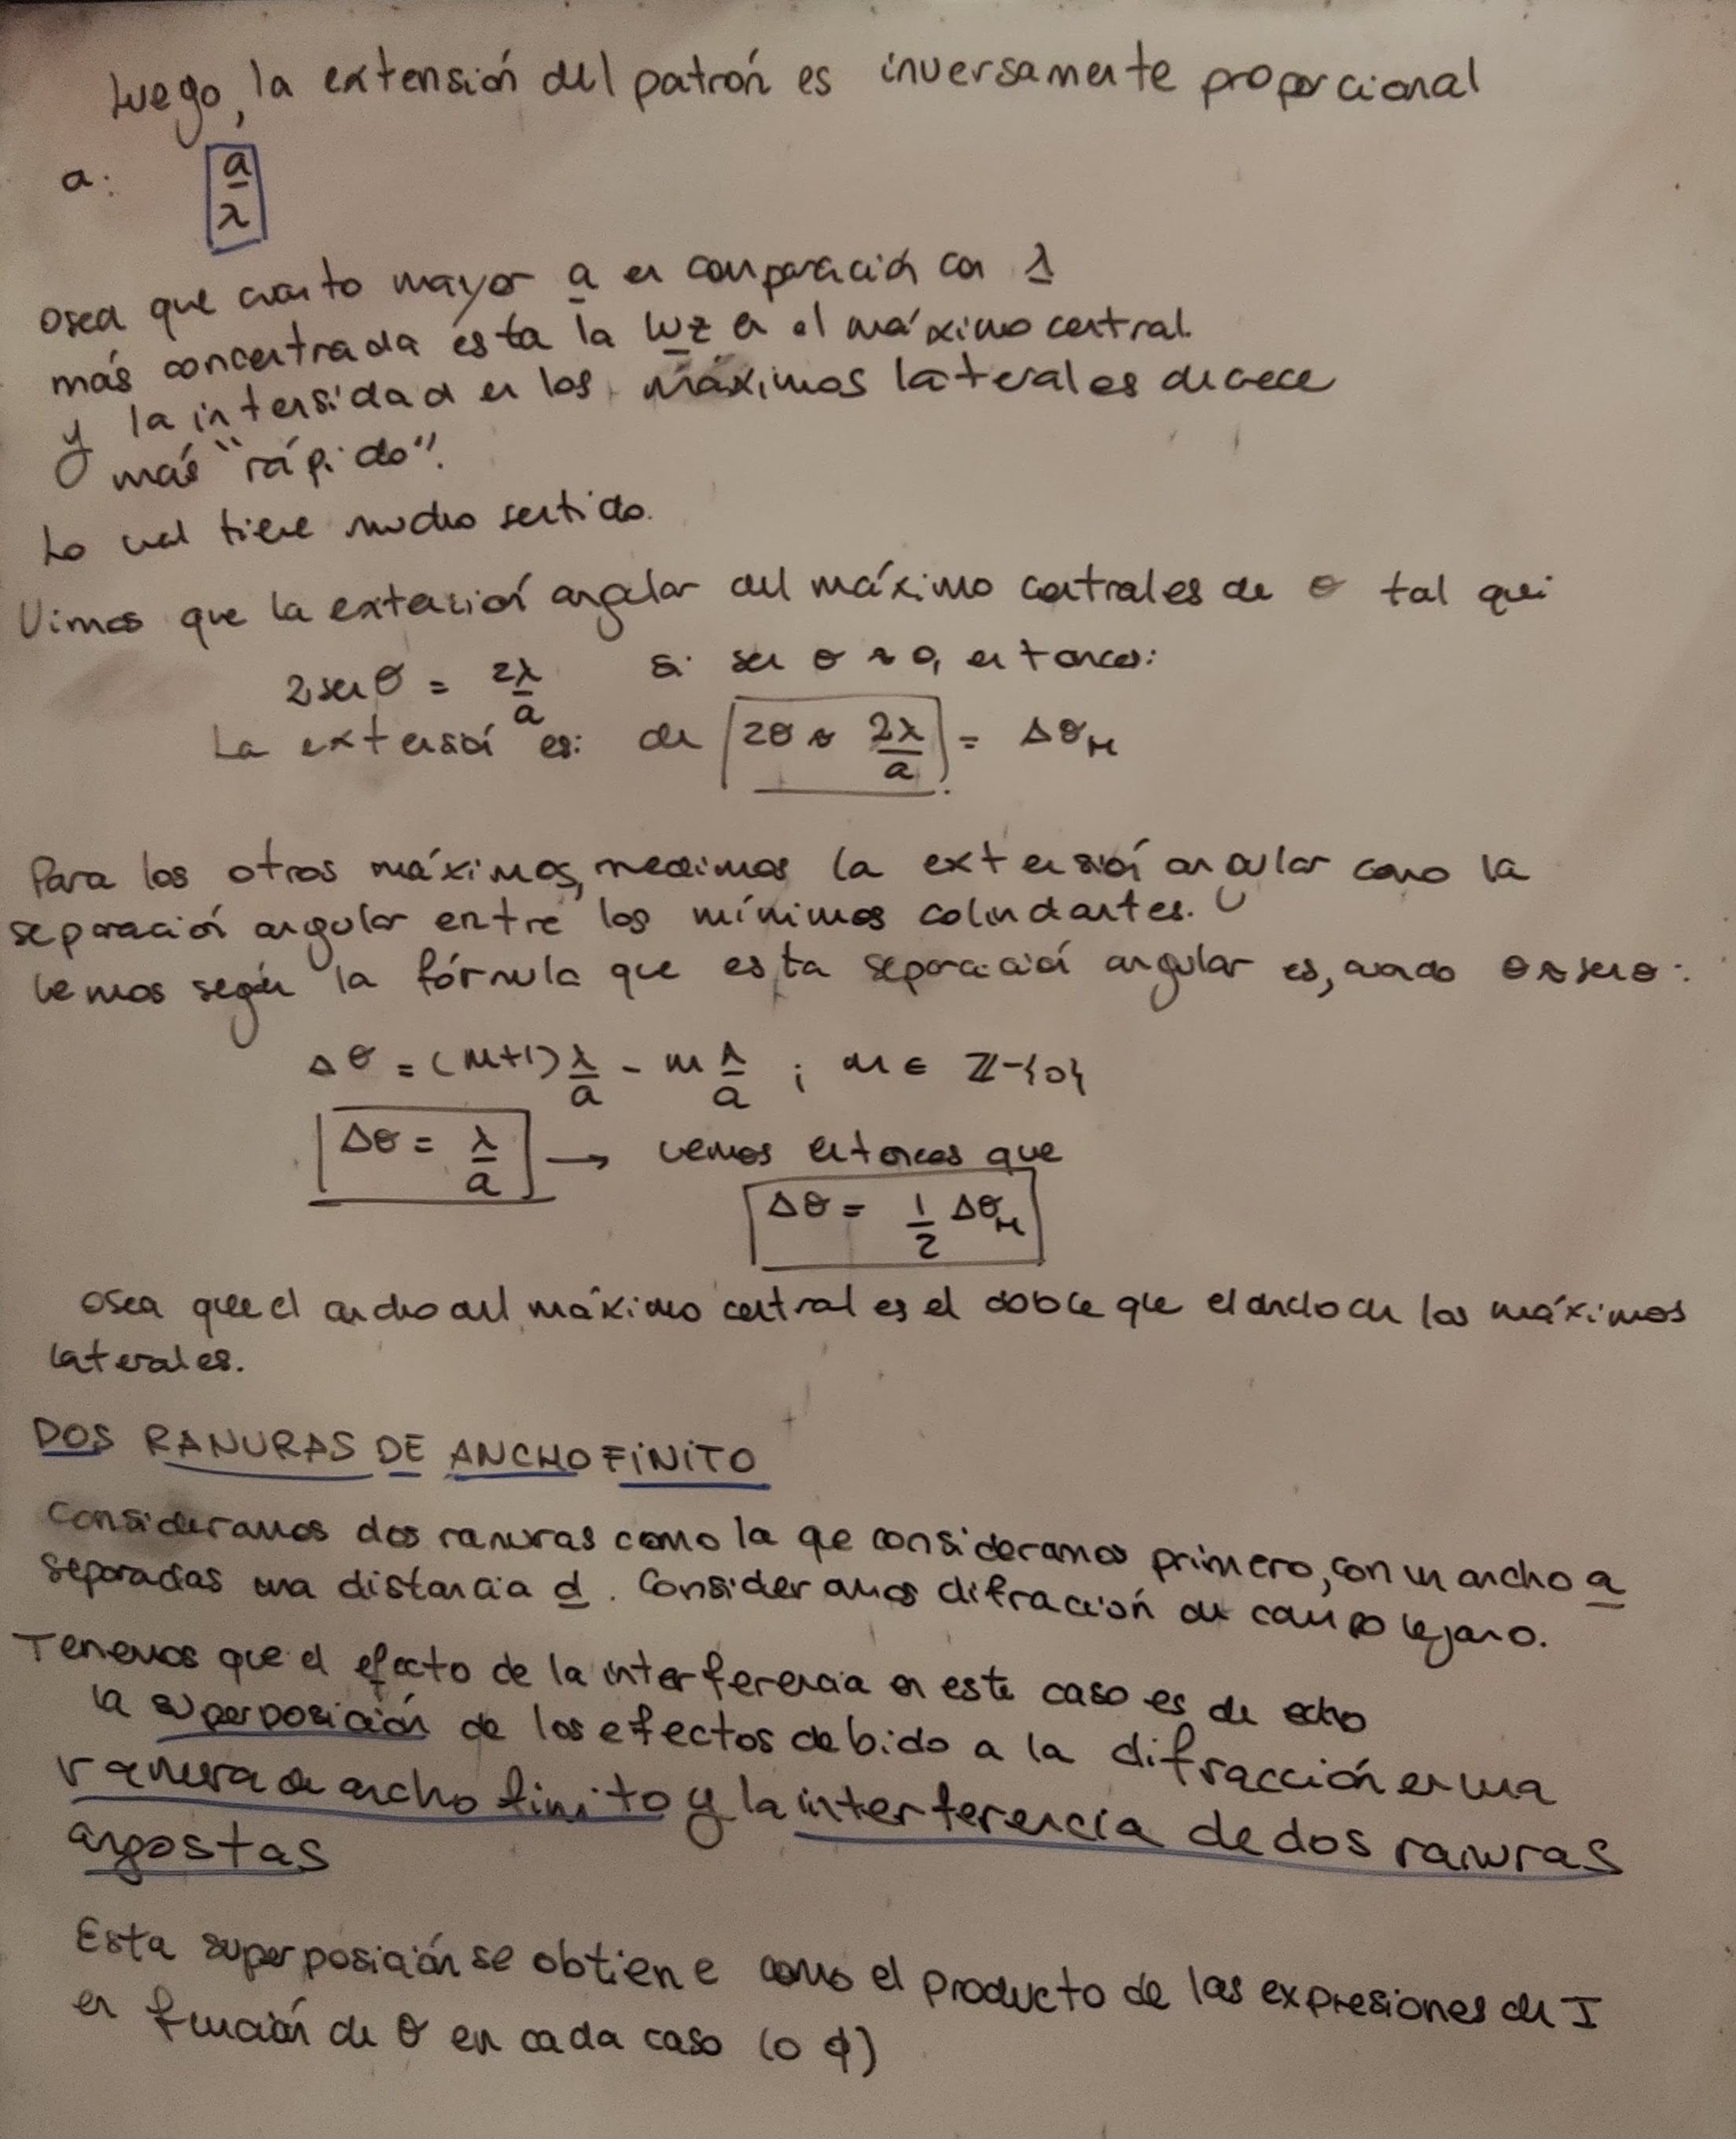 Luego, la extensión del patrón es inversamente proporcional
a: a/λ
Osea que cuanto mayor a en comparación con λ
más concentrada está la luz en el máximo central.
y la intensidad en los máximos laterales decrece
más "rápido".
Lo cual tiene mucho sentido.
Vimos que la extensión angular del máximo central es de θ tal que:
2 sen θ = 2λ/a si sen θ ≈ θ, entonces:
La extensión es: de 2θ ≈ 2λ/a = Δθ_M
Para los otros máximos, medimos la extensión angular como la
separación angular entre los mínimos colindantes.
Vemos según la fórmula que esta separación angular es, cuando θ ≈ sen θ:
Δθ = (m+1) λ/a - m λ/a ; m ∈ ℤ-{0}
Δθ = λ/a → vemos entonces que
Δθ = 1/2 Δθ_M
Osea que el ancho del máximo central es el doble que el ancho de los máximos
laterales.
DOS RANURAS DE ANCHO FINITO
Consideramos dos ranuras como la que consideramos primero, con un ancho a
separadas una distancia d. Consideramos difracción de campo lejano.
Tenemos que el efecto de la interferencia en este caso es de echo
la superposición de los efectos debido a la difracción en una
ranura de ancho finito y la interferencia de dos ranuras
angostas
Esta superposición se obtiene como el producto de las expresiones de I
en función de θ en cada caso (o ϕ)